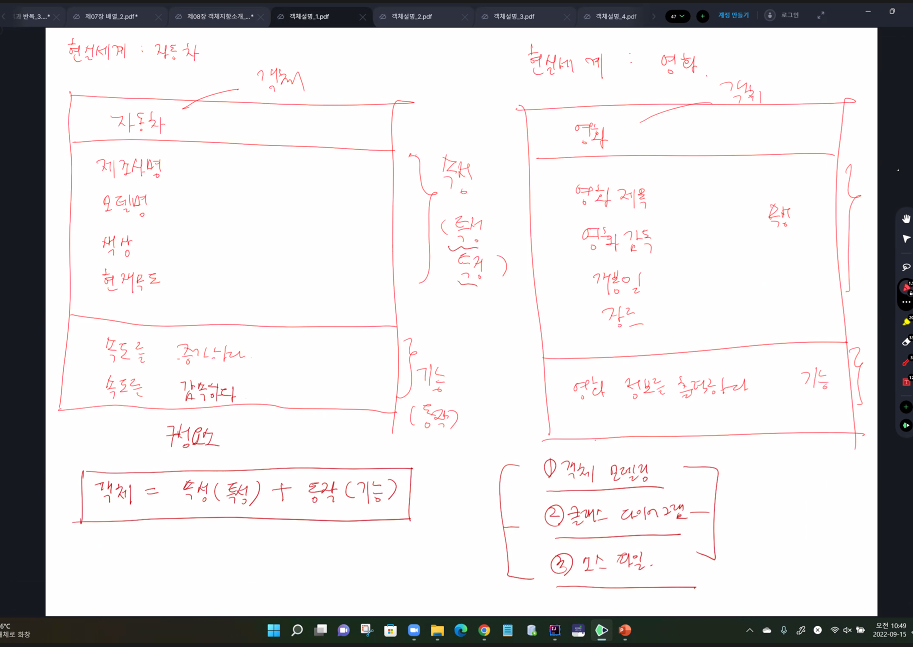 반복_3....*
제07장 배열_2.pdf*
제08장 객체지향소개,...*
객체설명_1.pdf
객체설명_2.pdf
객체설명_3.pdf
객체설명_4.pdf
47
계정 만들기
로그인
현실세계 : 자동차
객체
자동차
제조사명
모델명
색상
현재속도
속성
(특성
특징)
속도를 증가하다
속도를 감속하다
기능
(동작)
구성요소
객체 = 속성(특성) + 동작(기능)
현실세계 : 영화
객체
영화
영화 제목
영화 감독
개봉일
장르
속성
영화 정보를 출력하다
기능
① 객체 모델링
② 클래스 다이어그램
③ 소스 파일.
6°C
대체로 화창
오전 10:49
2022-09-15